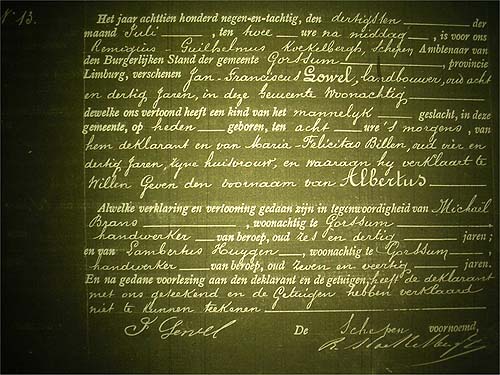 N° 13.
Het jaar achttien honderd negen-en-tachtig, den dertigsten der
maand Juli, ten twee ure na middag, is voor ons
Remigius-Guilhelmus Koekelbergh, Schepen Ambtenaar van
den Burgerlijken Stand der gemeente Gorssum, provincie
Limburg, verschenen Jan-Franciscus Gowel, landbouwer, oud acht
en dertig Jaren, in deze Gemeente Woonachtig
dewelke ons vertoond heeft een kind van het mannelyk geslacht, in deze
gemeente, op heden geboren, ten acht ure 's morgens, van
hem deklarant en van Maria-Felicitas Billen, oud vier en
dertig Jaren, zyne huisvrouw, en waaraan hy verklaart te
Willen Geven den voornaam van Albertus
Alwelke verklaring en vertooning gedaan zijn in tegenwoordigheid van Michaël
Brans, woonachtig te Gorssum
handwerker van beroep, oud zes en dertig jaren;
en van Lambertus Huygen, woonachtig te Gorssum,
handwerker van beroep, oud zeven en veertig jaren.
En na gedane voorlezing aan den deklarant en de getuigen, heeft de deklarant
met ons geteekend en de Getuigen hebben verklaard
niet te kunnen teekenen.
De Schepen voornoemd,